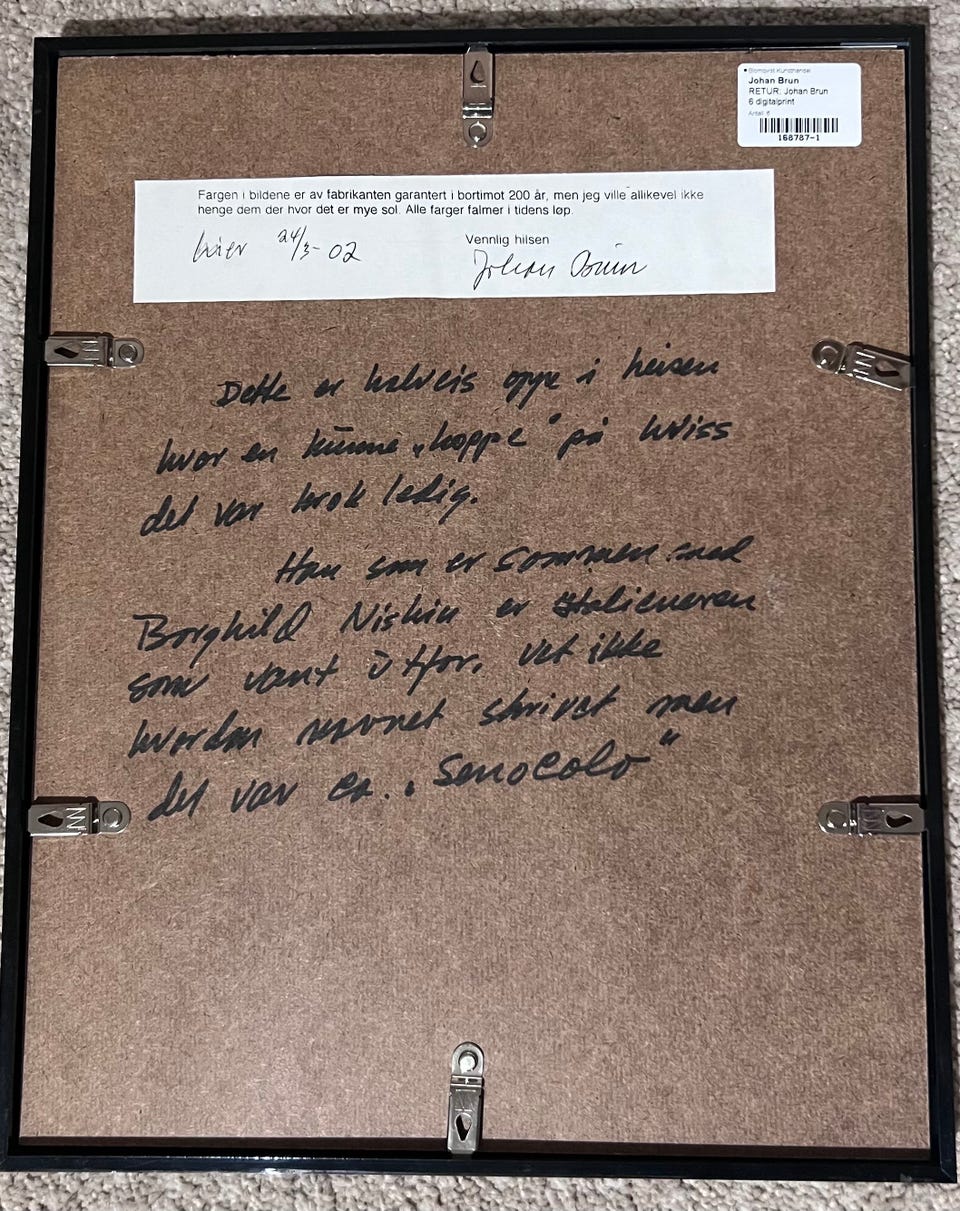 Blomqvist Kunsthandel
Johan Brun
RETUR: Johan Brun
6 digitalprint
Antall: 6
168787-1
Fargen i bildene er av fabrikanten garantert i bortimot 200 år, men jeg ville allikevel ikke
henge dem der hvor det er mye sol. Alle farger falmer i tidens løp.
24/3-02
Vennlig hilsen
Johan Brun
Dette er halveis oppe i heisen
hvor en kunne „hoppe" på hviss
det var krok ledig.
Han som er sammen med
Borghild Niskin er italieneren
som vant utfor, vet ikke
hvordan navnet skrivet men
det var ca. „Senocolo"
NN
NN